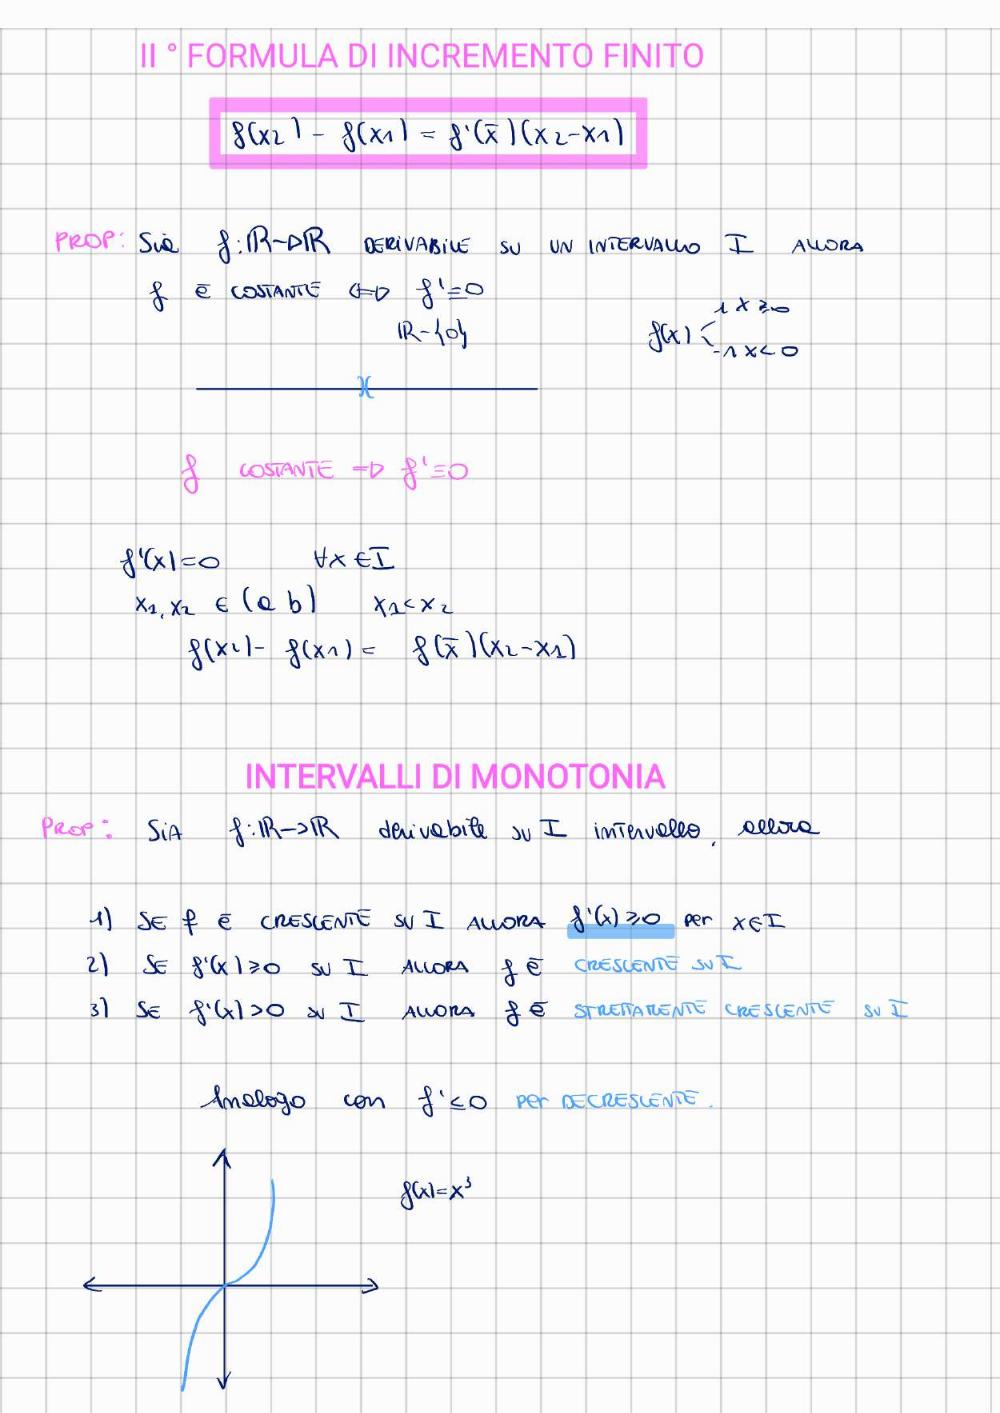 II ° FORMULA DI INCREMENTO FINITO
f(x2) - f(x1) = f'(x̄)(x2-x1)
PROP: Sia f: ℝ→ℝ DERIVABILE SU UN INTERVALLO I ALLORA
f È COSTANTE ⇔ f'≡0
ℝ-{0}
f(x) < 1 x≥0
-1 x<0
f COSTANTE ⇒ f'≡0
f'(x)=0 ∀x∈I
x1, x2 ∈ (a b) x1<x2
f(x2)- f(x1) = f(x̄)(x2-x1)
INTERVALLI DI MONOTONIA
PROP: SIA f: ℝ→ℝ derivabile su I intervallo, allora
1) SE f È CRESCENTE SU I ALLORA f'(x)≥0 per x∈I
2) SE f'(x)≥0 SU I ALLORA f È CRESCENTE SU I
3) SE f'(x)>0 SU I ALLORA f È STRETTAMENTE CRESCENTE SU I
Analogo con f'≤0 per DECRESCENTE.
f(x)=x³